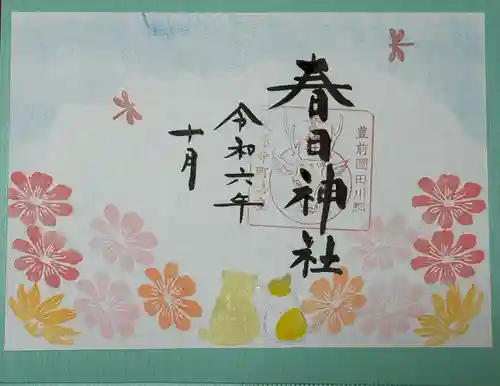 春日神社
豊前國田川郡
令和六年
十月